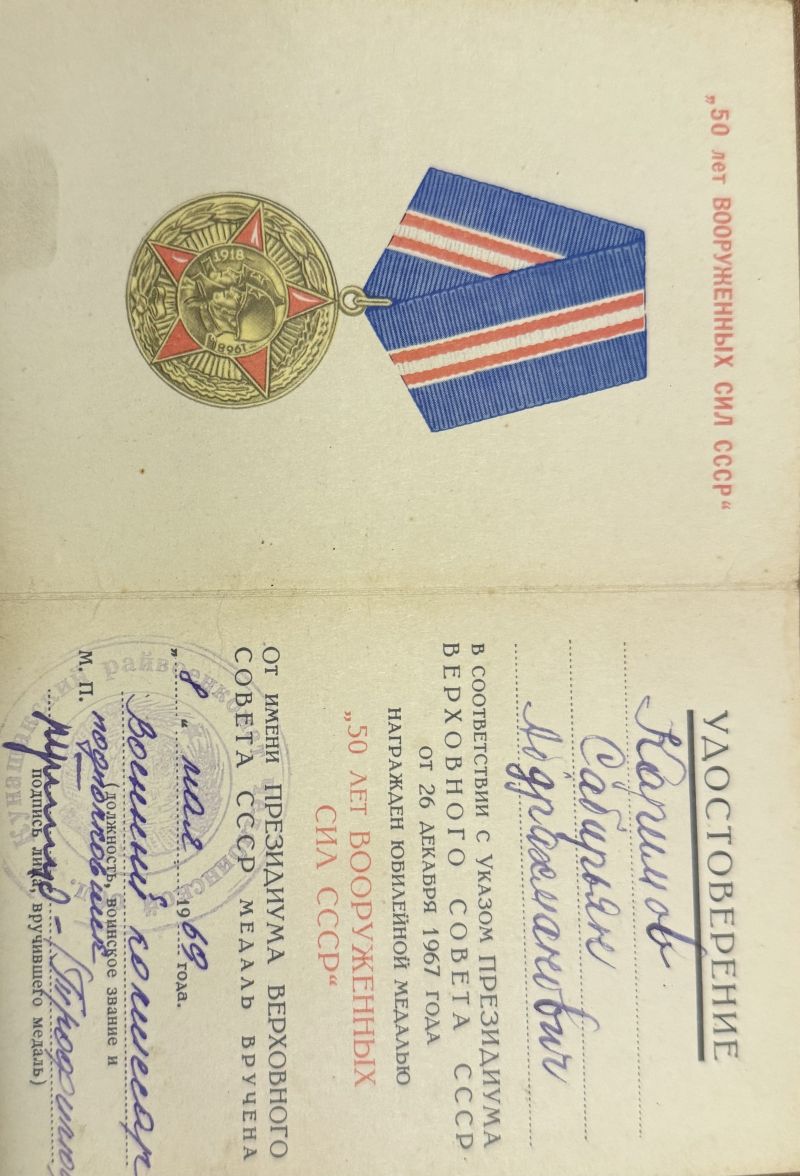 „50 лет ВООРУЖЕННЫХ СИЛ СССР“
1918
1968
УДОСТОВЕРЕНИЕ
Каримов
Сабирьян
В СООТВЕТСТВИИ С УКАЗОМ ПРЕЗИДИУМА
ВЕРХОВНОГО СОВЕТА СССР
ОТ 26 ДЕКАБРЯ 1967 ГОДА
НАГРАЖДЕН ЮБИЛЕЙНОЙ МЕДАЛЬЮ
„50 ЛЕТ ВООРУЖЕННЫХ
СИЛ СССР“
ОТ ИМЕНИ ПРЕЗИДИУМА ВЕРХОВНОГО
СОВЕТА СССР МЕДАЛЬ ВРУЧЕНА
„8“ мая 1969 года.
Военный комиссар
(должность, воинское звание и
подполковник
М. П.
подпись лица, вручившего медаль)
райвоенкомат